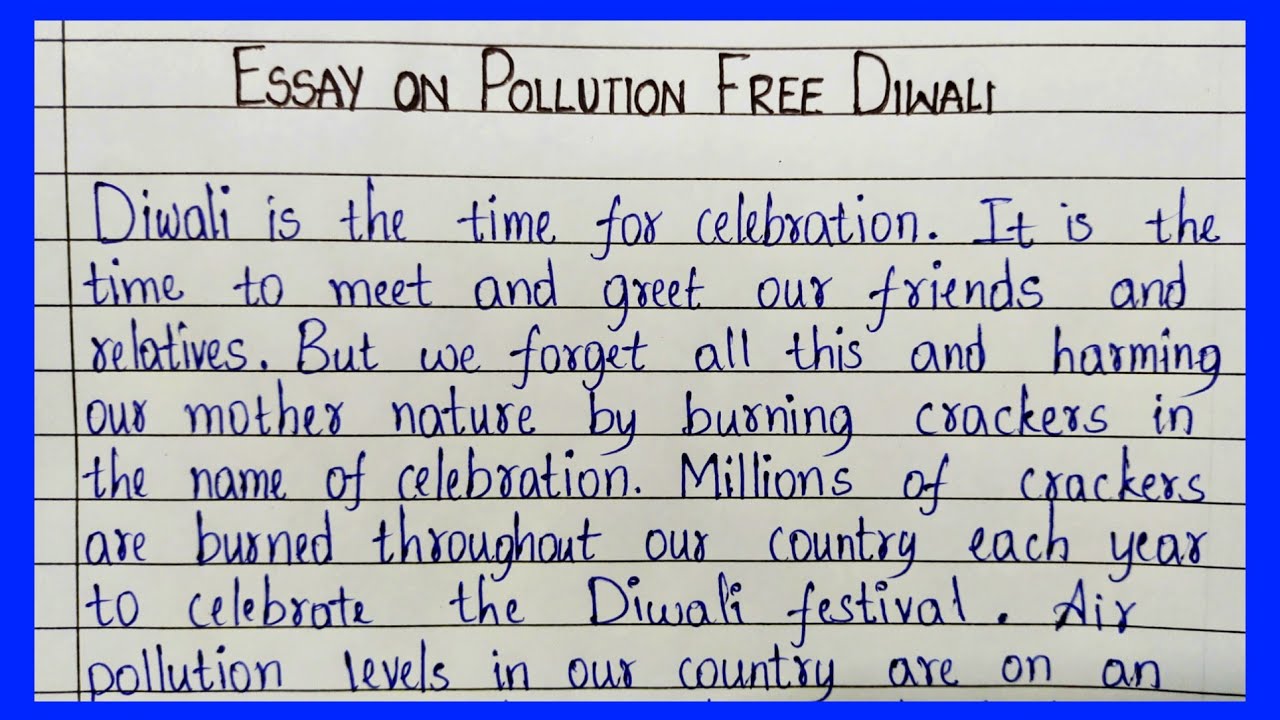 ESSAY ON POLLUTION FREE DIWALI
Diwali is the time for celebration. It is the
time to meet and greet our friends and
relatives. But we forget all this and harming
our mother nature by burning crackers in
the name of celebration. Millions of crackers
are burned throughout our country each year
to celebrate the Diwali festival. Air
pollution levels in our country are on an